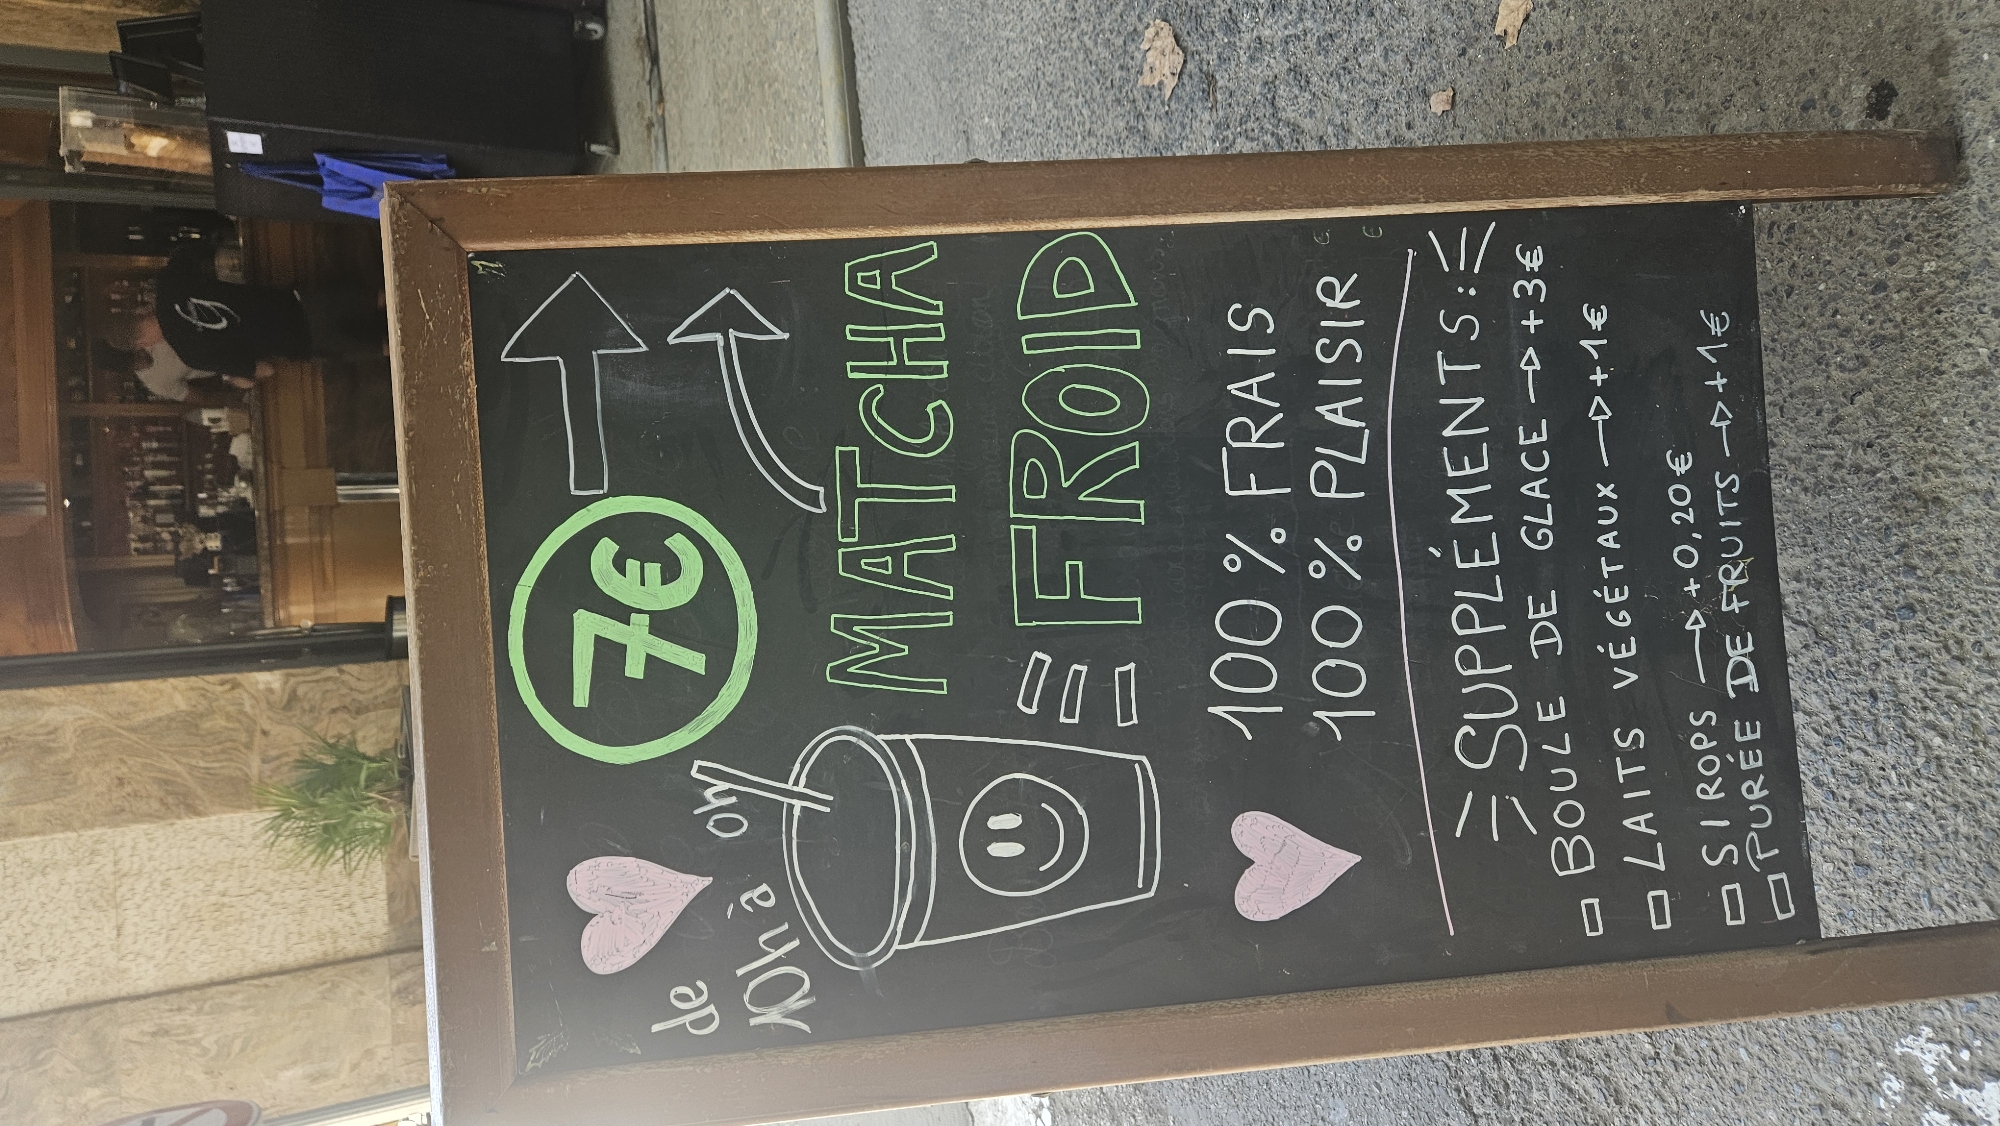 7€
de
10h à 0h
MATCHA
FROID
100% FRAIS
100% PLAISIR
SUPPLÉMENTS:
BOULE DE GLACE → +3€
LAITS VÉGÉTAUX → +1€
SIROPS → +0,20€
PURÉE DE FRUITS → +1€